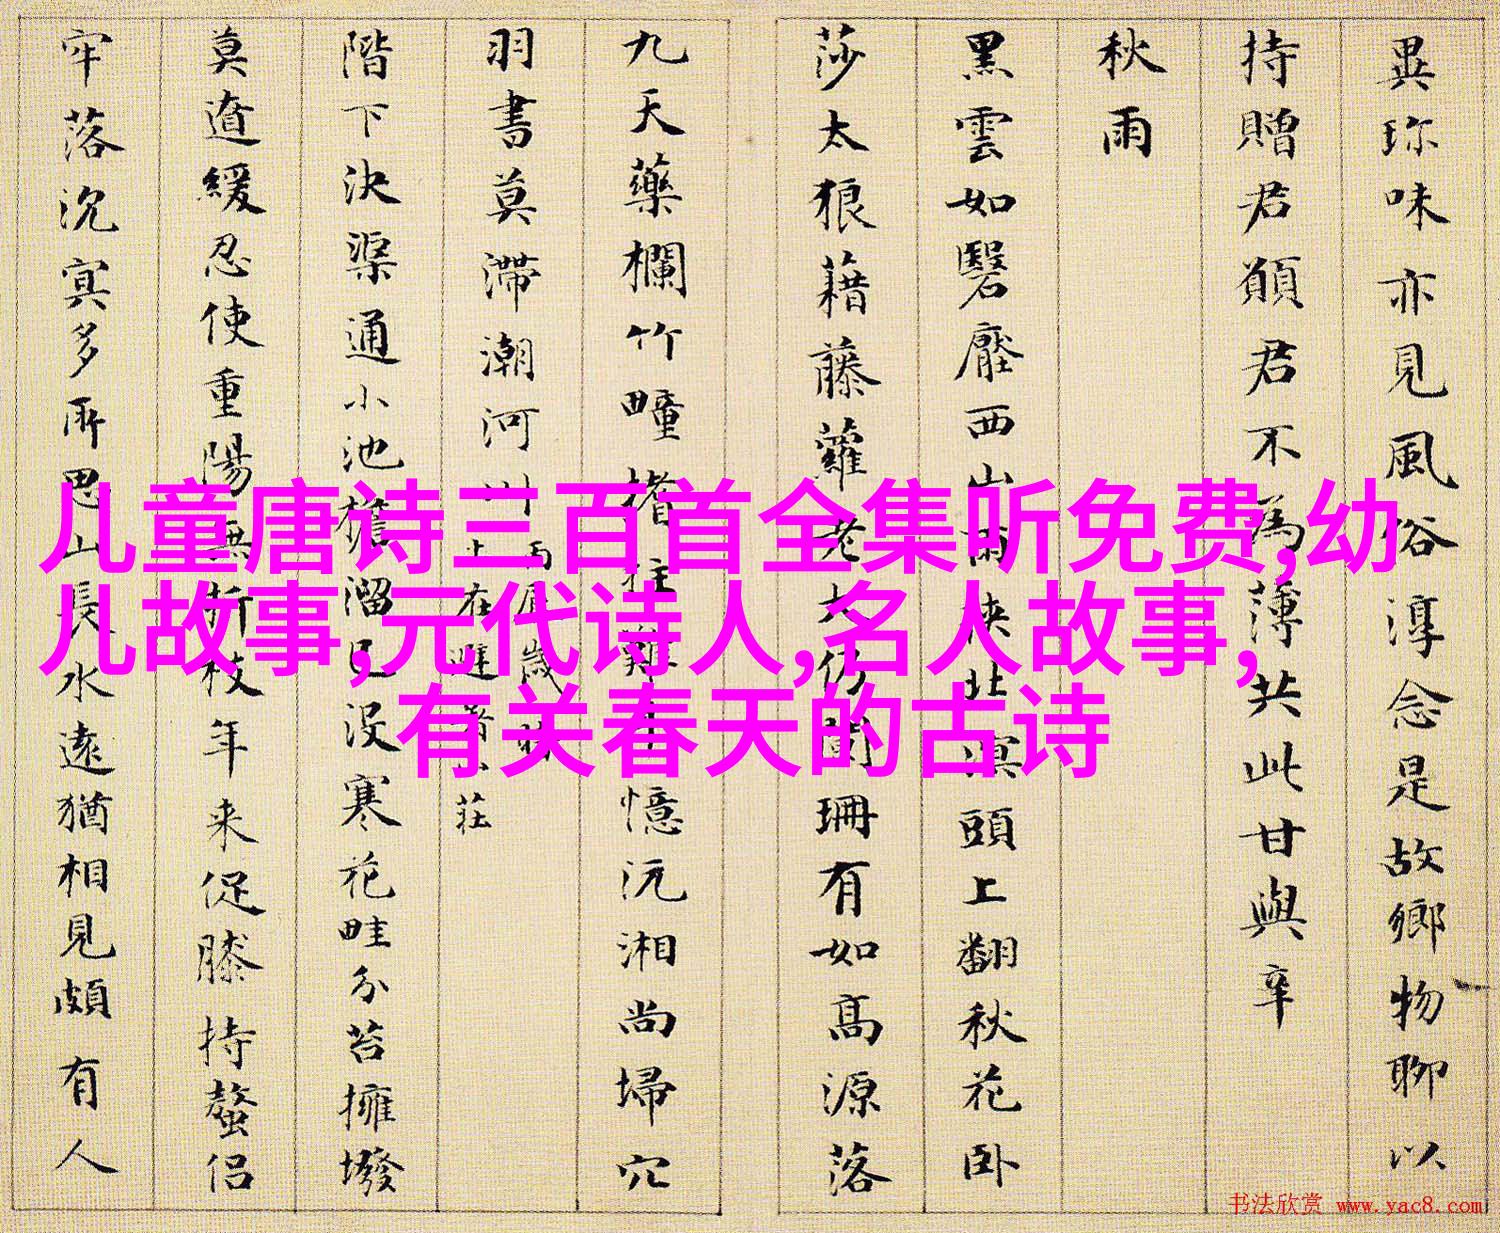 異珎味亦見風俗淳念是故鄉物聊以
持贈君願君不為薄共此甘與辛
秋雨
黑雲如翳壓西山雨北溟頭上翻秋花卧
莎太狼藉藤蘿老大仍聞珊有如高源落
九天藥欄竹疃憶沅湘尚埽穴
羽書莫滯潮河川
在避莊
階下決渠通小池檐溜已没寒花畦分苔擁墢
莫遣緩忍使重陽無折枝年来促膝持螯侣
牢落沉冥多所思山長水遠猶相見頗有人
儿童唐诗三百首全集听免费,幼
儿故事,元代诗人,名人故事,
有关春天的古诗
书法欣赏 www.yac8.com